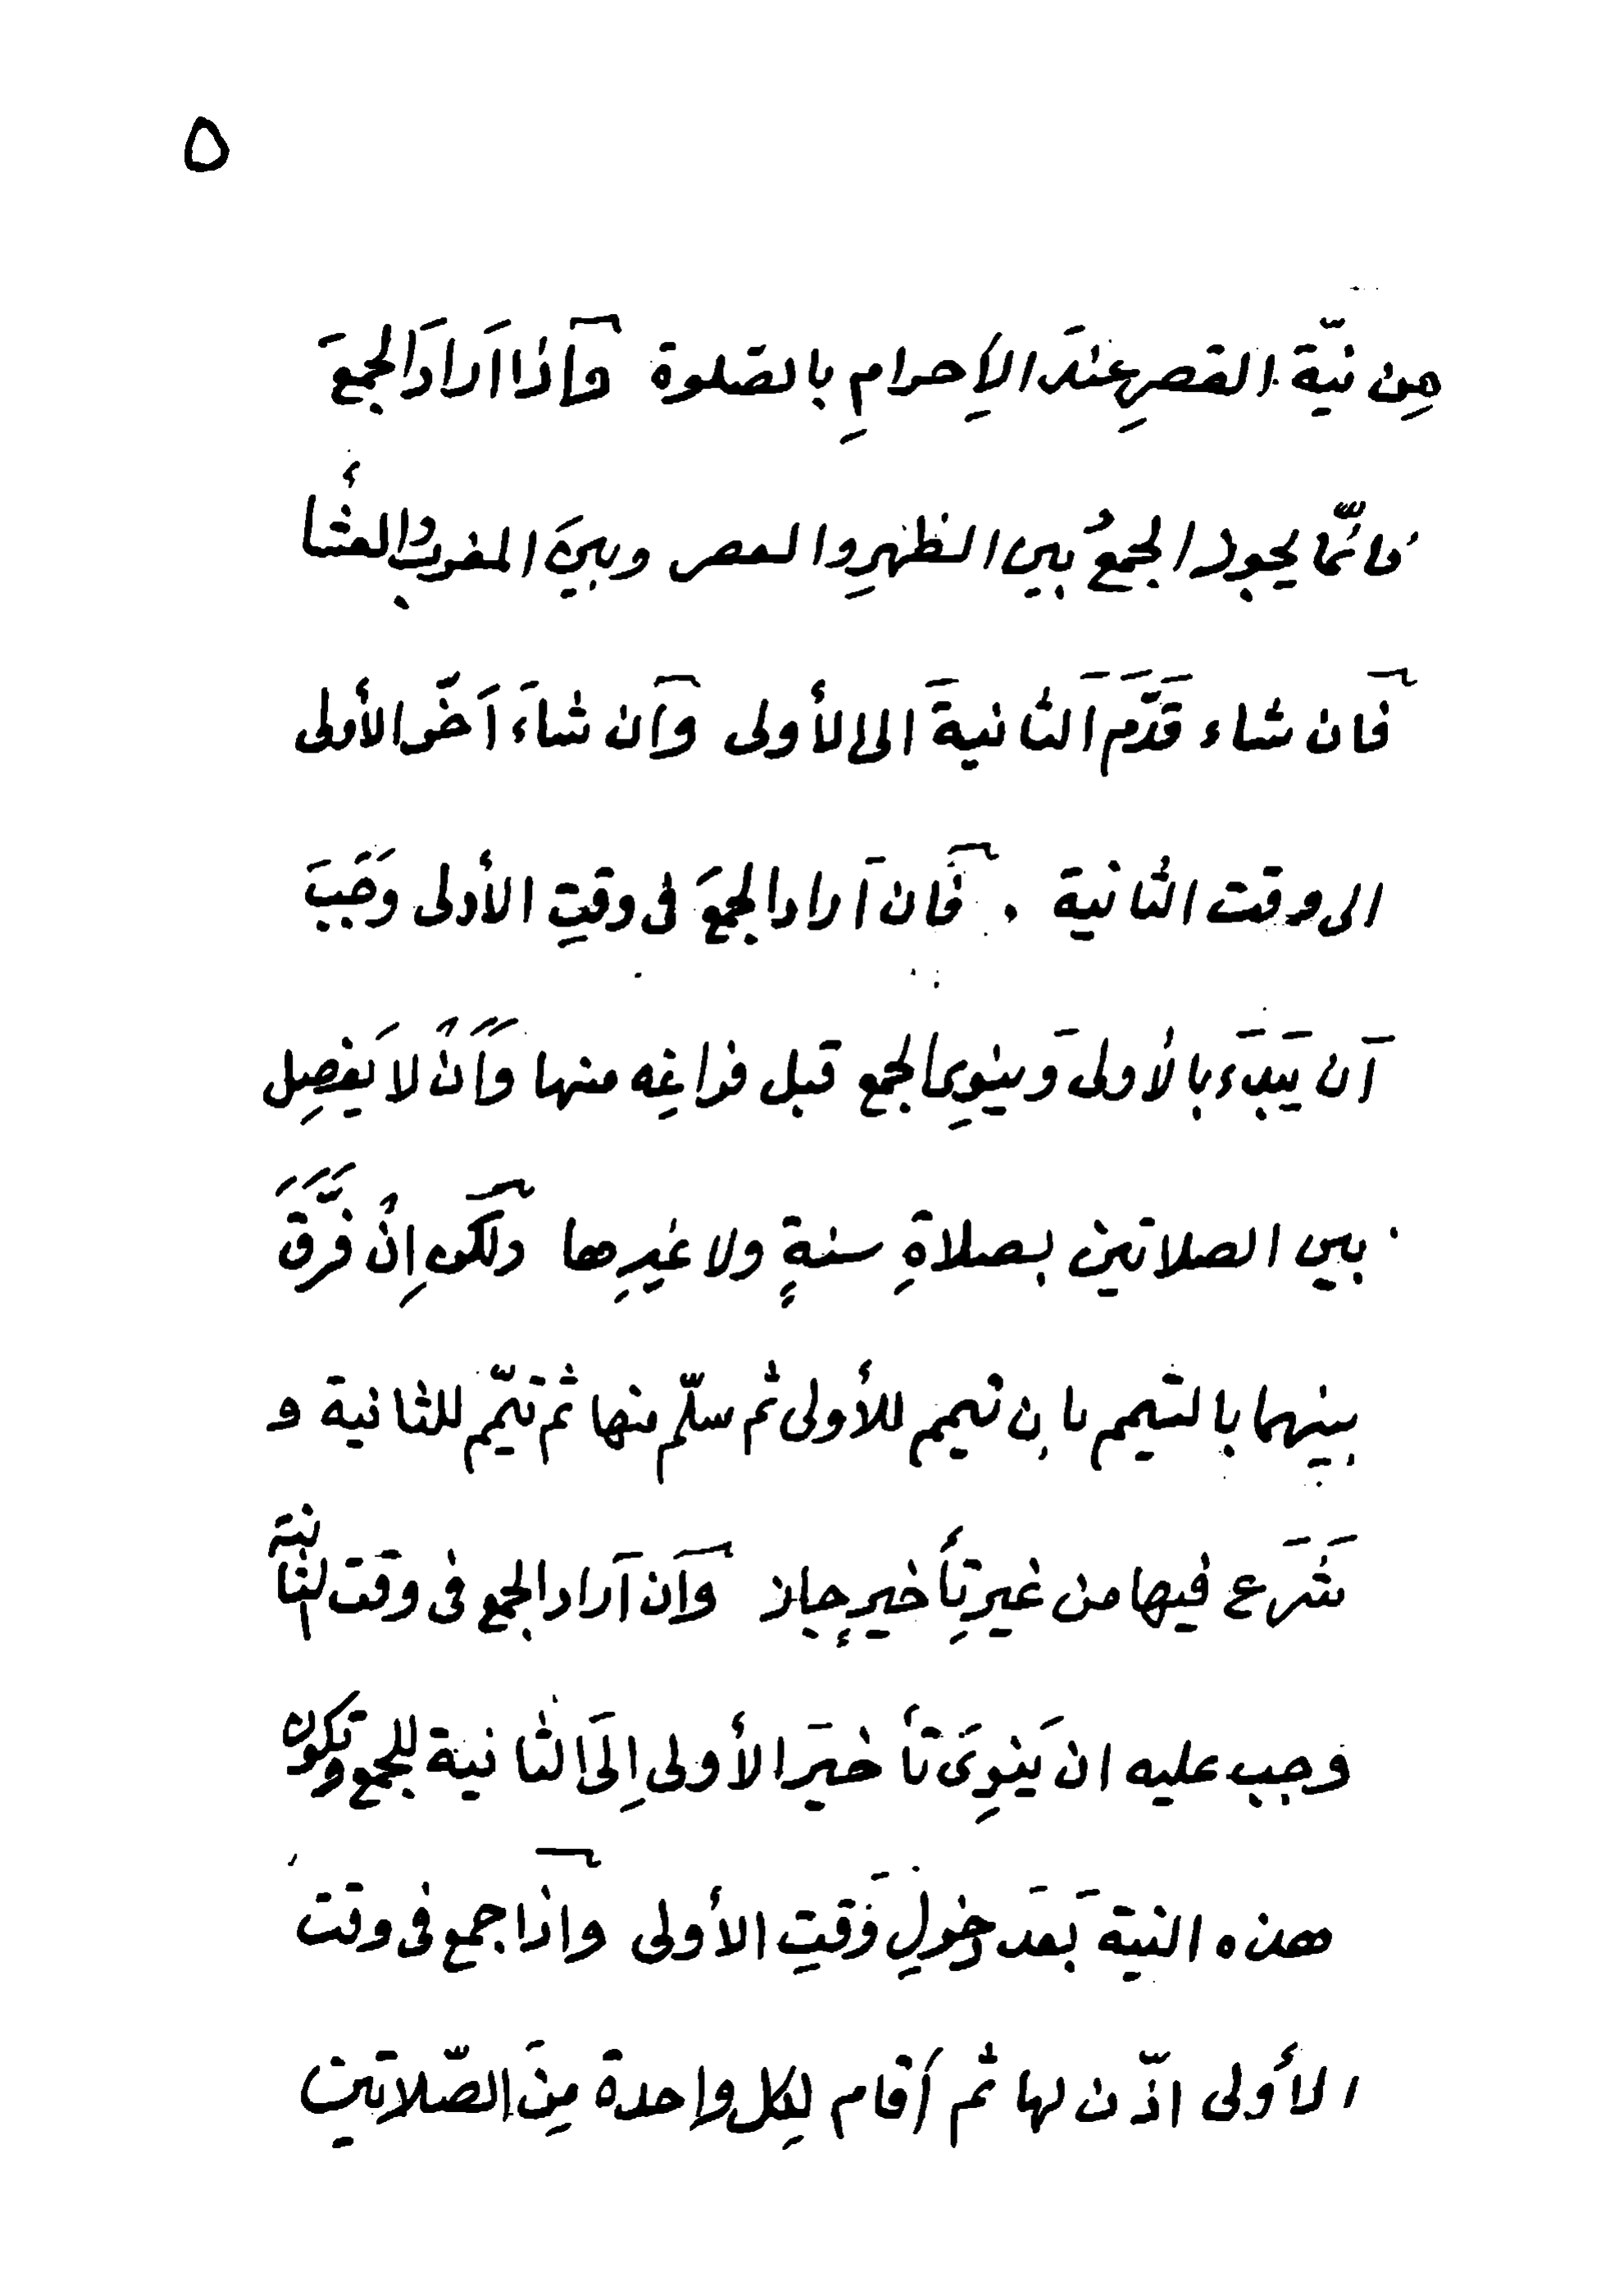 ٥
مِن نيّة القصرِ عندَ الاِحرامِ بالصّلوة وَاذا اَرادَ الجمعَ
فانّما يجوز الجمعُ بين الظهرِ والعصر وبينَ المغربِ والعشأ
فَان شاء قَدَّمَ الثانيةَ الى الأولى وَان شاءَ اَخّر الأولى
الى وقت الثانية . فَان اَراد الجمعَ فى وقتِ الأولى وَجَبَ
اَن يَبدَءَ بالأولى وَينوِى الجمع قبل فراغِه منها وَاَنْ لا يَفصِل
بين الصلاتين بصلاةِ سنةٍ ولا غيرِها ولكن اِنْ فَرَّقَ
بينهما بالتيمم بان تيمم للأولى ثم سلّم منها ثم تيمّم للثانية و
شَرَع فيها من غير تأخيرٍ جاز وَان اَراد الجمع فى وقت الثانية
وجب عليه ان يَنوِىَ تأخيرَ الأولى اِلَى الثانية للجمع وتكون
هذه النية بَعدَ دخولِ وَقتِ الأولى واذا جمع فى وقت
الأولى اذّن لها ثم أقام لِكل واحدة مِنَ الصّلاتين